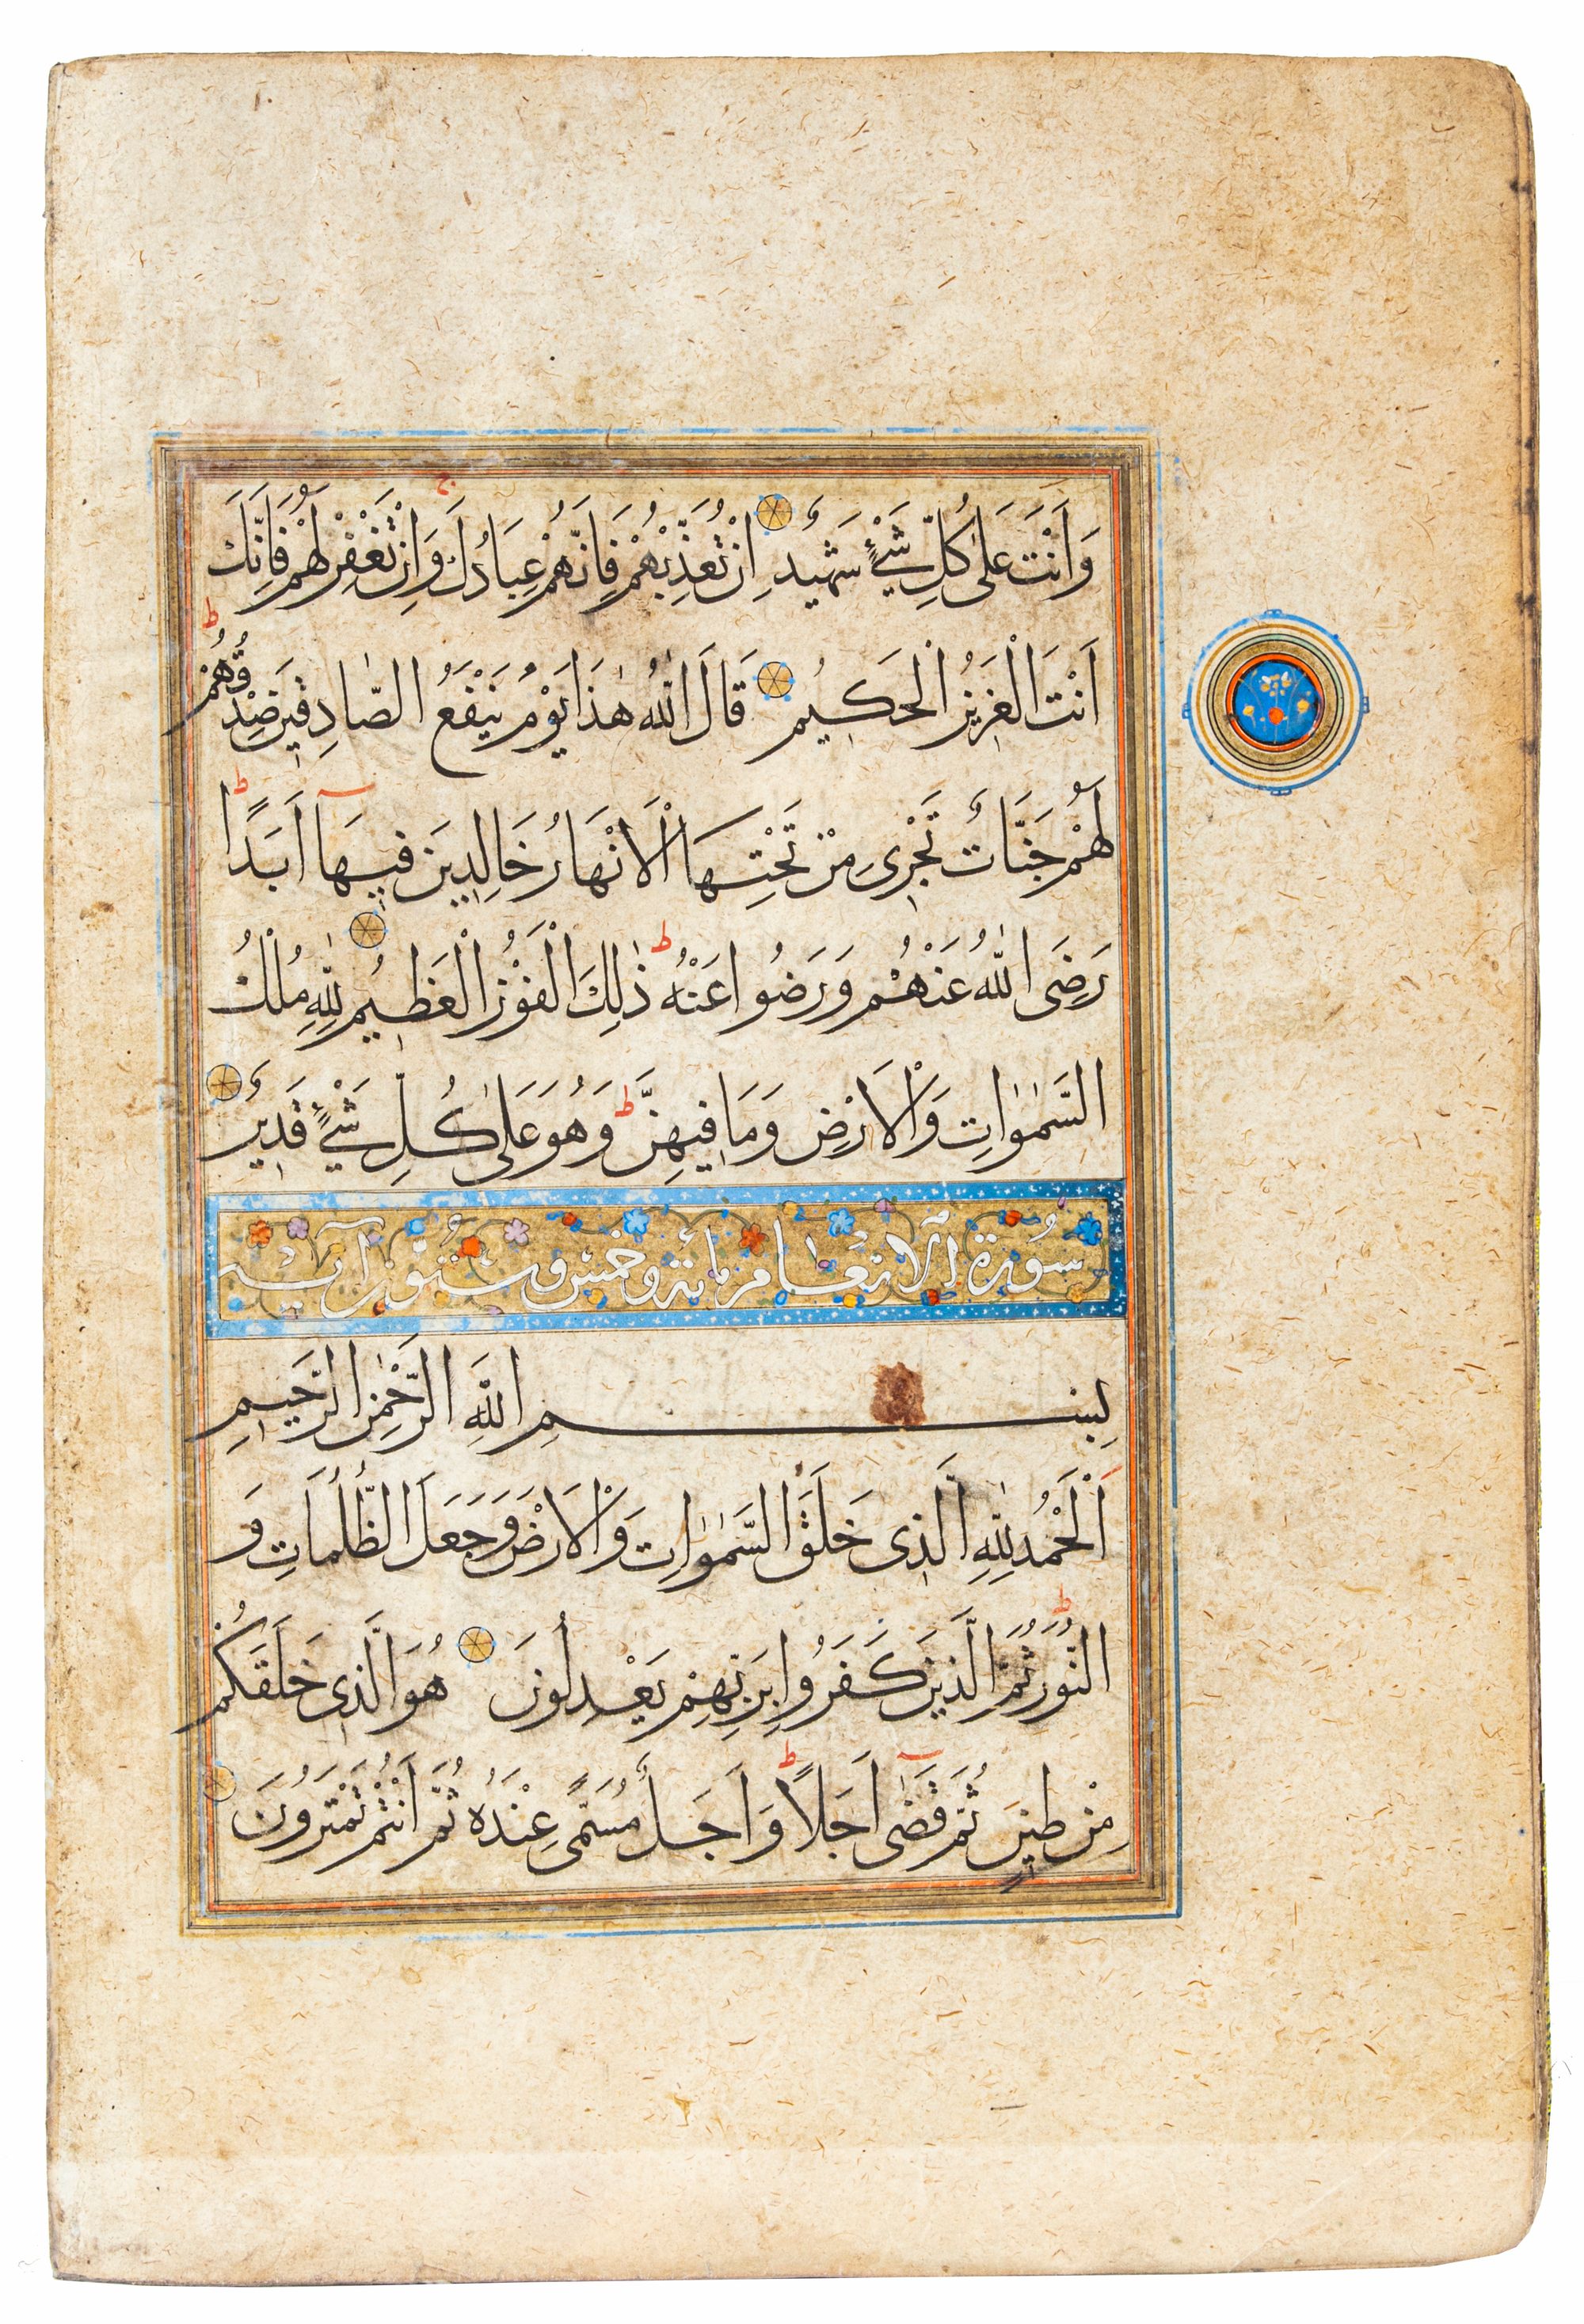 وَاَنْتَ عَلٰى كُلِّ شَيْءٍ شَهٖيدٌ اِنْ تُعَذِّبْهُمْ فَاِنَّهُمْ عِبَادُكَ وَاِنْ تَغْفِرْ لَهُمْ فَاِنَّكَ
اَنْتَ الْعَزِيزُ الْحَكِيمُ قَالَ اللّٰهُ هٰذَا يَوْمُ يَنْفَعُ الصَّادِقِينَ صِدْقُهُمْ
لَهُمْ جَنَّاتٌ تَجْرِى مِنْ تَحْتِهَا الْاَنْهَارُ خَالِدِينَ فِيهَا اَبَدًا
رَضِىَ اللّٰهُ عَنْهُمْ وَرَضُوا عَنْهُ ذٰلِكَ الْفَوْزُ الْعَظِيمُ لِلّٰهِ مُلْكُ
السَّمٰوٰاتِ وَالْاَرْضِ وَمَا فِيهِنَّ وَهُوَ عَلٰى كُلِّ شَيْءٍ قَدِيرٌ
سُورَة الانعام مائة وخمس وستون آية
بِسْمِ اللّٰهِ الرَّحْمٰنِ الرَّحِيمِ
اَلْحَمْدُ لِلّٰهِ الَّذِى خَلَقَ السَّمٰوٰاتِ وَالْاَرْضَ وَجَعَلَ الظُّلُمَاتِ وَ
النُّورَ ثُمَّ الَّذِينَ كَفَرُوا بِرَبِّهِمْ يَعْدِلُونَ هُوَ الَّذِى خَلَقَكُمْ
مِنْ طِينٍ ثُمَّ قَضٰى اَجَلًا وَاَجَلٌ مُسَمًّى عِنْدَهُ ثُمَّ اَنْتُمْ تَمْتَرُونَ